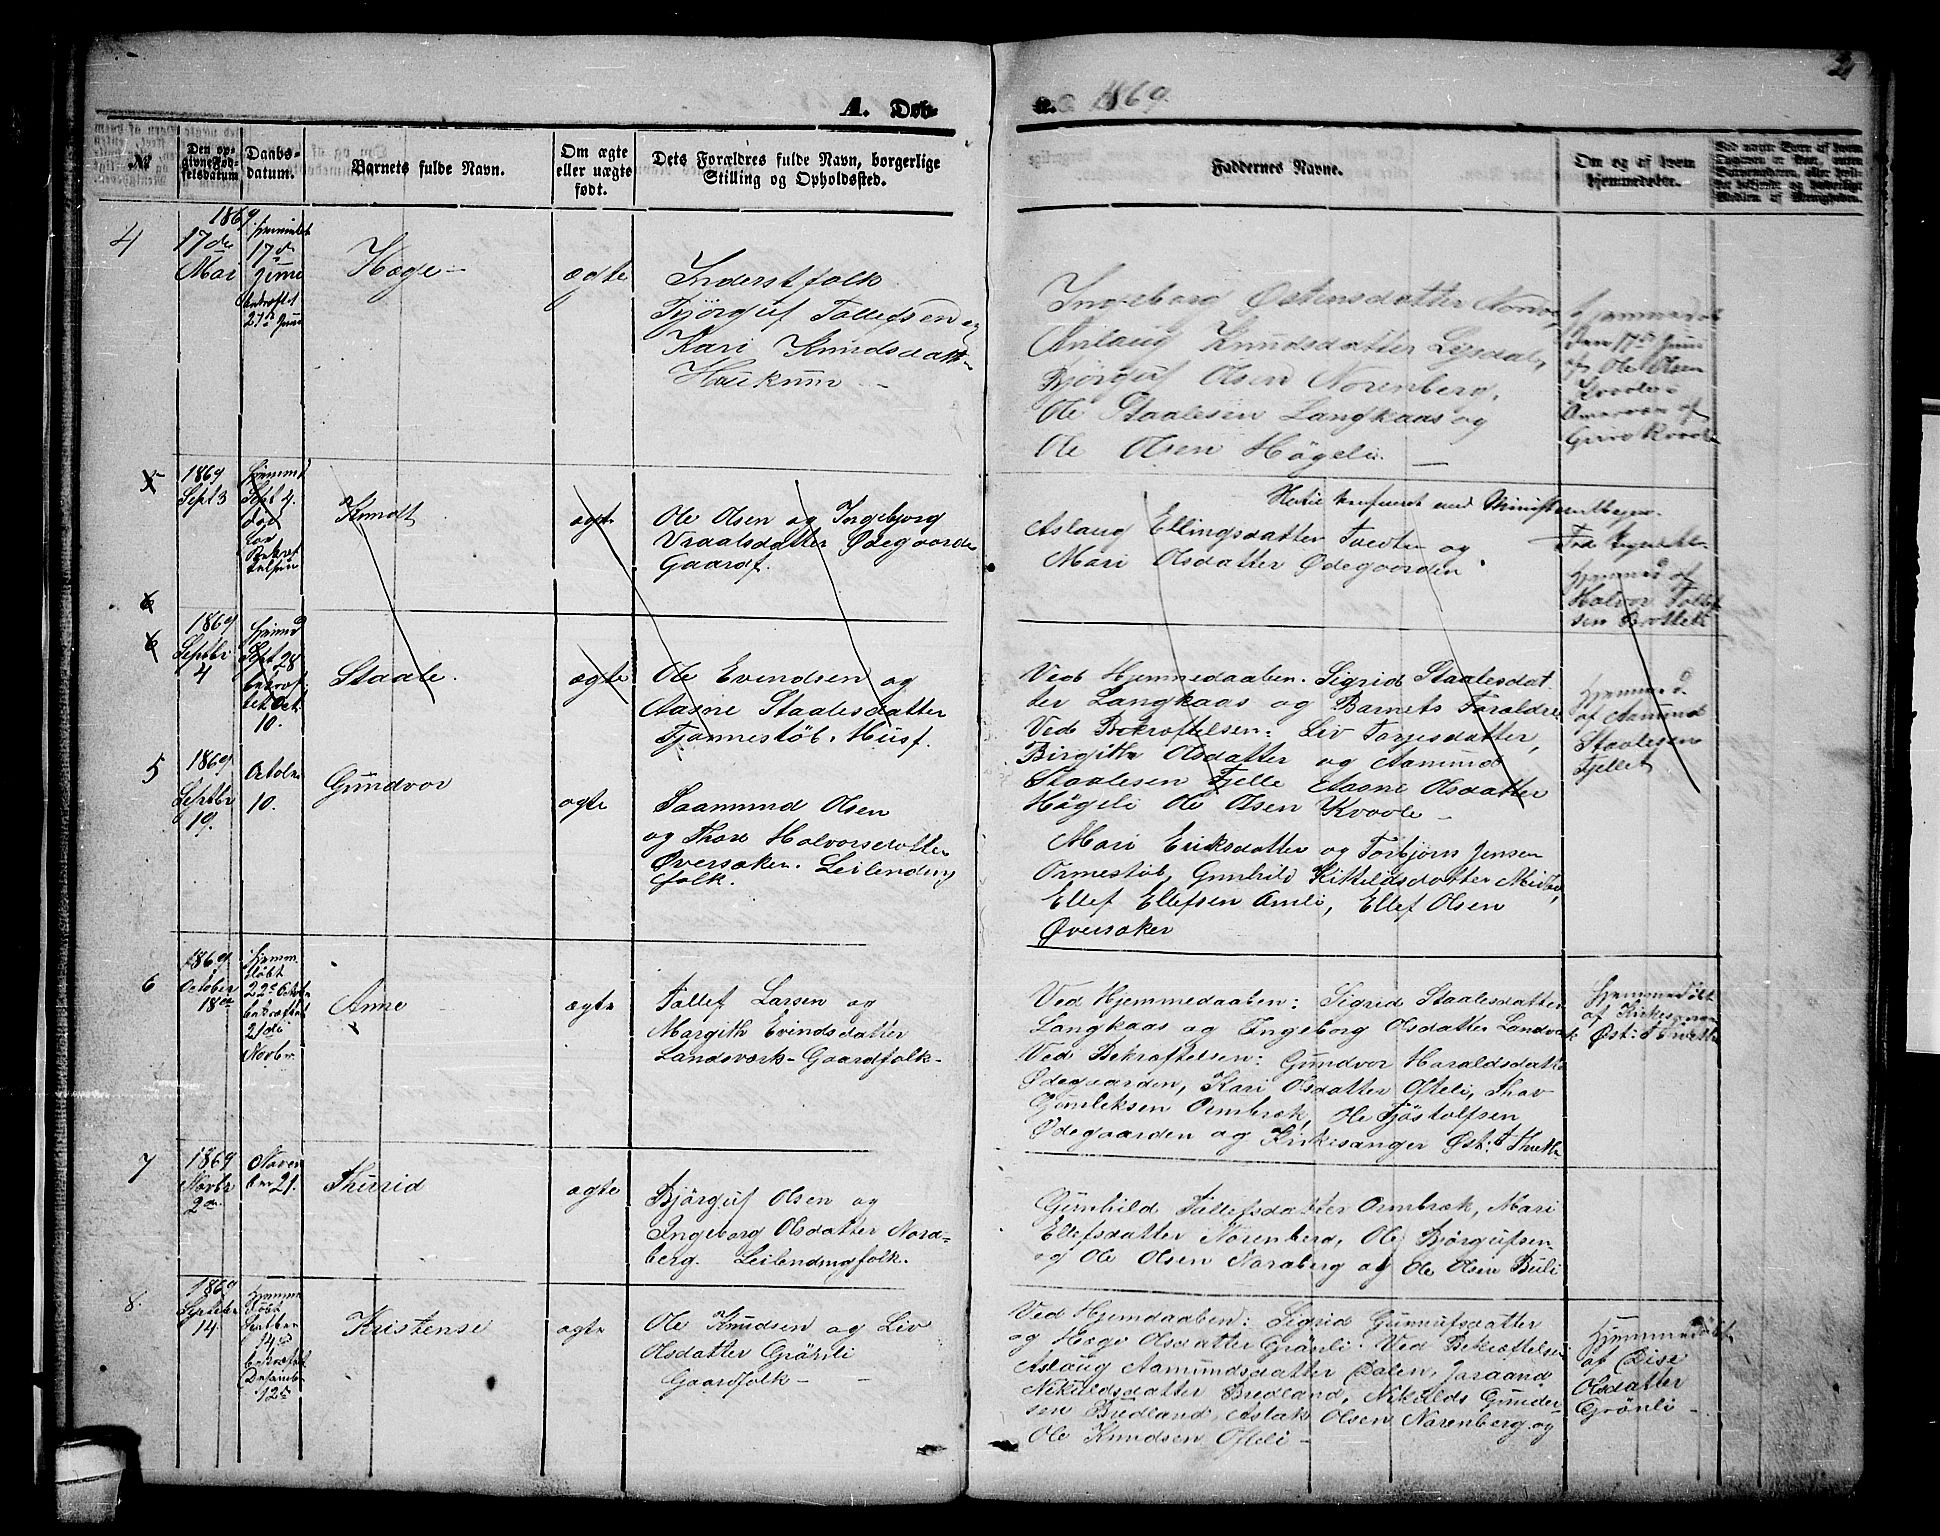 2
A. Døb-
te. 1869.
№
Den op-
givne Fød-
selsdatum
Daabs-
datum.
Barnets fulde Navn.
Om ægte
eller uægte
født.
Dets Forældres fulde Navn, borgerlige
Stilling og Opholdssted.
Faddernes Navne.
Om og af hvem
hjemmedøbt.
4
1869
17de
Mai
17de
Juni
bekræftet
27de Juni
Hæge
ægte
Inderstfolk
Bjørguf Tallefsen og
Kari Knudsdatt
Haukum
Ingeborg Østensdatter
Anlaug Knudsdatter Lysdal,
Bjørguf Olsen Norenberg,
Ole Staalesen Langkaas og
Ole Olsen Høgeli.
Hjemmedøbt
den 17de Juni
af Ole Olsen
5
1869
Sept 3
Hjemmed
Sept 4.
Knudt
ægte
Ole Olsen og Ingebjorg
Vraalsdatter Ødegaarden
Gaardf.
Hertil konfereret med Ministerialbogen.
Aslaug Ellingsdatter Tvedten og
Mari Olsdatter Ødegaarden
Hjemmed af
Halvor Tollef
sen
6
6
1869
Septbr
4
Hjemmed
Sept 28
bekræf
tet Oct.
10.
Staale.
ægte
Ole Evindsen og
Aasne Staalesdatter
Tjønnestøb. Husf.
Ved Hjemmedaaben. Sigrid Staalesdat
ter Langkaas og Barnets Forældre
Ved Bekræftelsen: Liv Torjesdatter,
Birgith Olsdatter og Aamund
Staalesen Fjelle Aasne Olsdatter
Høgeli Ole Olsen Kvovle
Hjemmed.
af Aamund
Staalesen
Fjellet
5
1869
Septbr
19.
Octobr
10.
Gundvor
ægte
Saamund Olsen
og Thore Halvorsdatter
Øversaker. Leilending
folk.
Mari Eriksdatter og Torbjørn Jensen
Ormestøb, Gunhild Kittilsdatter
Ellef Ellefsen Omli, Ellef Olsen
Øversaker
6
1869
October
18de
Hjemme
døbt
22de Octobr
bekræftet
21de
Novbr
Anne
ægte
Tallef Larsen og
Margith Evindsdatter
Landsverk Gaardfolk
Ved Hjemmedaaben: Sigrid Staalesdatter
Langkaas og Ingeborg Olsdatter Landverk
Ved Bekræftelsen: Gundvor Haraldsdatter
Ødegaarden, Kari Olsdatter Ofteli, Thor
Gunleksen Ormbræk, Ole Tjøstolfsen
Ødegaarden og Kirkesanger Øst: T
Hjemmedøbt
af Kirkesanger
Øst: T
7
1869
Novbr
2den
Novem
ber 21.
Thurid
ægte
Bjørguf Olsen og
Ingeborg Olsdatter Nord-
berg. Leilendingfolk.
Gunhild Tallefsdatter Ormbræk, Mari
Ellefsdatter Norenberg, Ole Bjørgufsen
og Ole Olsen Noraberg og Ole Olsen Buli
8.
1869
Septeber
14.
Hjemme
døbt
14de
bekræftet
Desember
12te
Kristense
ægte
Ole Knudsen og Liv
Olsdatter Grønli
Gaardfolk
Ved Hjemdaaben: Sigrid Gunnufsdatter
og Hæge Olsdatter Grønli. Ved Bekræftelsen
Aslaug Aamundsdatter Dalen, Joraand
Nikuldsdatter Bredland, Nikulds Gunder
sen Bredland, Aslak Olsen Norenberg og
Ole Knudsen Ofteli
Hjemmedøbt
af Dise
Olsdatter
Grønli